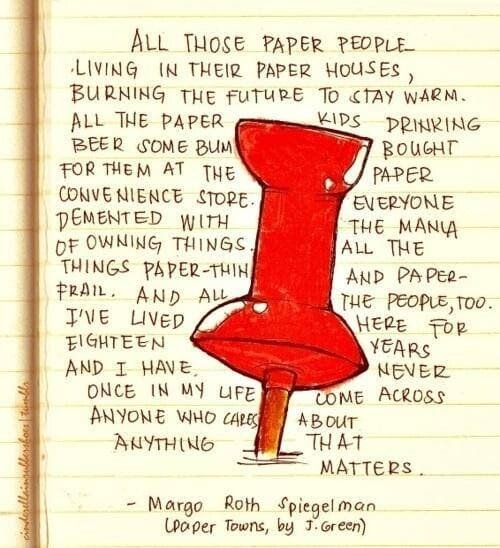 ALL THOSE PAPER PEOPLE
LIVING IN THEIR PAPER HOUSES,
BURNING THE FUTURE TO STAY WARM.
ALL THE PAPER KIDS DRINKING
BEER SOME BUM BOUGHT
FOR THEM AT THE PAPER
CONVENIENCE STORE. EVERYONE
DEMENTED WITH THE MANIA
OF OWNING THINGS. ALL THE
THINGS PAPER-THIN AND PAPER-
FRAIL. AND ALL THE PEOPLE, TOO.
I'VE LIVED HERE FOR
EIGHTEEN YEARS
AND I HAVE NEVER
ONCE IN MY LIFE COME ACROSS
ANYONE WHO CARES ABOUT
ANYTHING THAT
MATTERS.
- Margo Roth Spiegelman
(Paper Towns, by J. Green)
tumblr